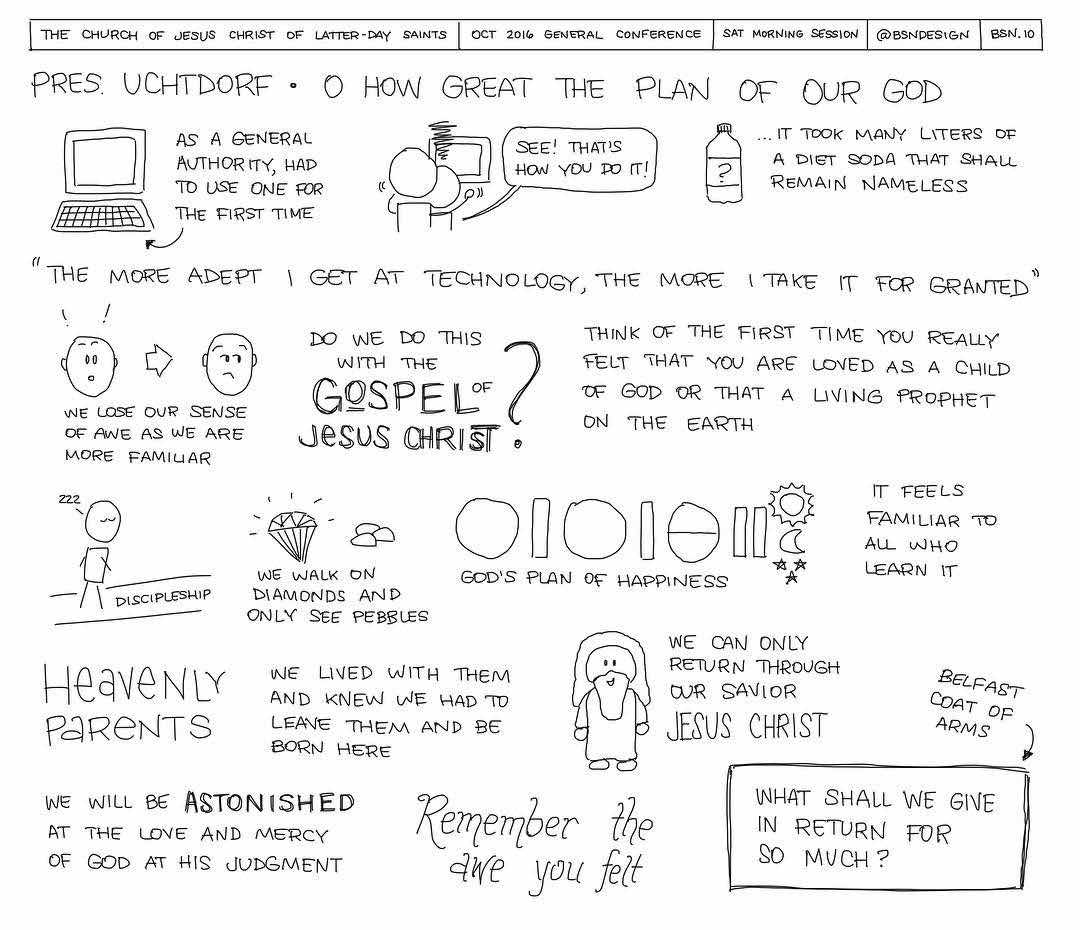 THE CHURCH OF JESUS CHRIST OF LATTER-DAY SAINTS
OCT 2016 GENERAL CONFERENCE
SAT MORNING SESSION
@BSNDESIGN
BSN.10
PRES. UCHTDORF • O HOW GREAT THE PLAN OF OUR GOD
AS A GENERAL
AUTHORITY, HAD
TO USE ONE FOR
THE FIRST TIME
SEE! THAT'S
HOW YOU DO IT!
?
...IT TOOK MANY LITERS OF
A DIET SODA THAT SHALL
REMAIN NAMELESS
"THE MORE ADEPT I GET AT TECHNOLOGY, THE MORE I TAKE IT FOR GRANTED"
! !
WE LOSE OUR SENSE
OF AWE AS WE ARE
MORE FAMILIAR
DO WE DO THIS
WITH THE
GOSPEL OF
JESUS CHRIST?
THINK OF THE FIRST TIME YOU REALLY
FELT THAT YOU ARE LOVED AS A CHILD
OF GOD OR THAT A LIVING PROPHET
ON THE EARTH
ZZZ
DISCIPLESHIP
WE WALK ON
DIAMONDS AND
ONLY SEE PEBBLES
GOD'S PLAN OF HAPPINESS
IT FEELS
FAMILIAR TO
ALL WHO
LEARN IT
HEAVENLY
PARENTS
WE LIVED WITH THEM
AND KNEW WE HAD TO
LEAVE THEM AND BE
BORN HERE
WE CAN ONLY
RETURN THROUGH
OUR SAVIOR
JESUS CHRIST
BELFAST
COAT OF
ARMS
WE WILL BE ASTONISHED
AT THE LOVE AND MERCY
OF GOD AT HIS JUDGMENT
Remember the
awe you felt
WHAT SHALL WE GIVE
IN RETURN FOR
SO MUCH?